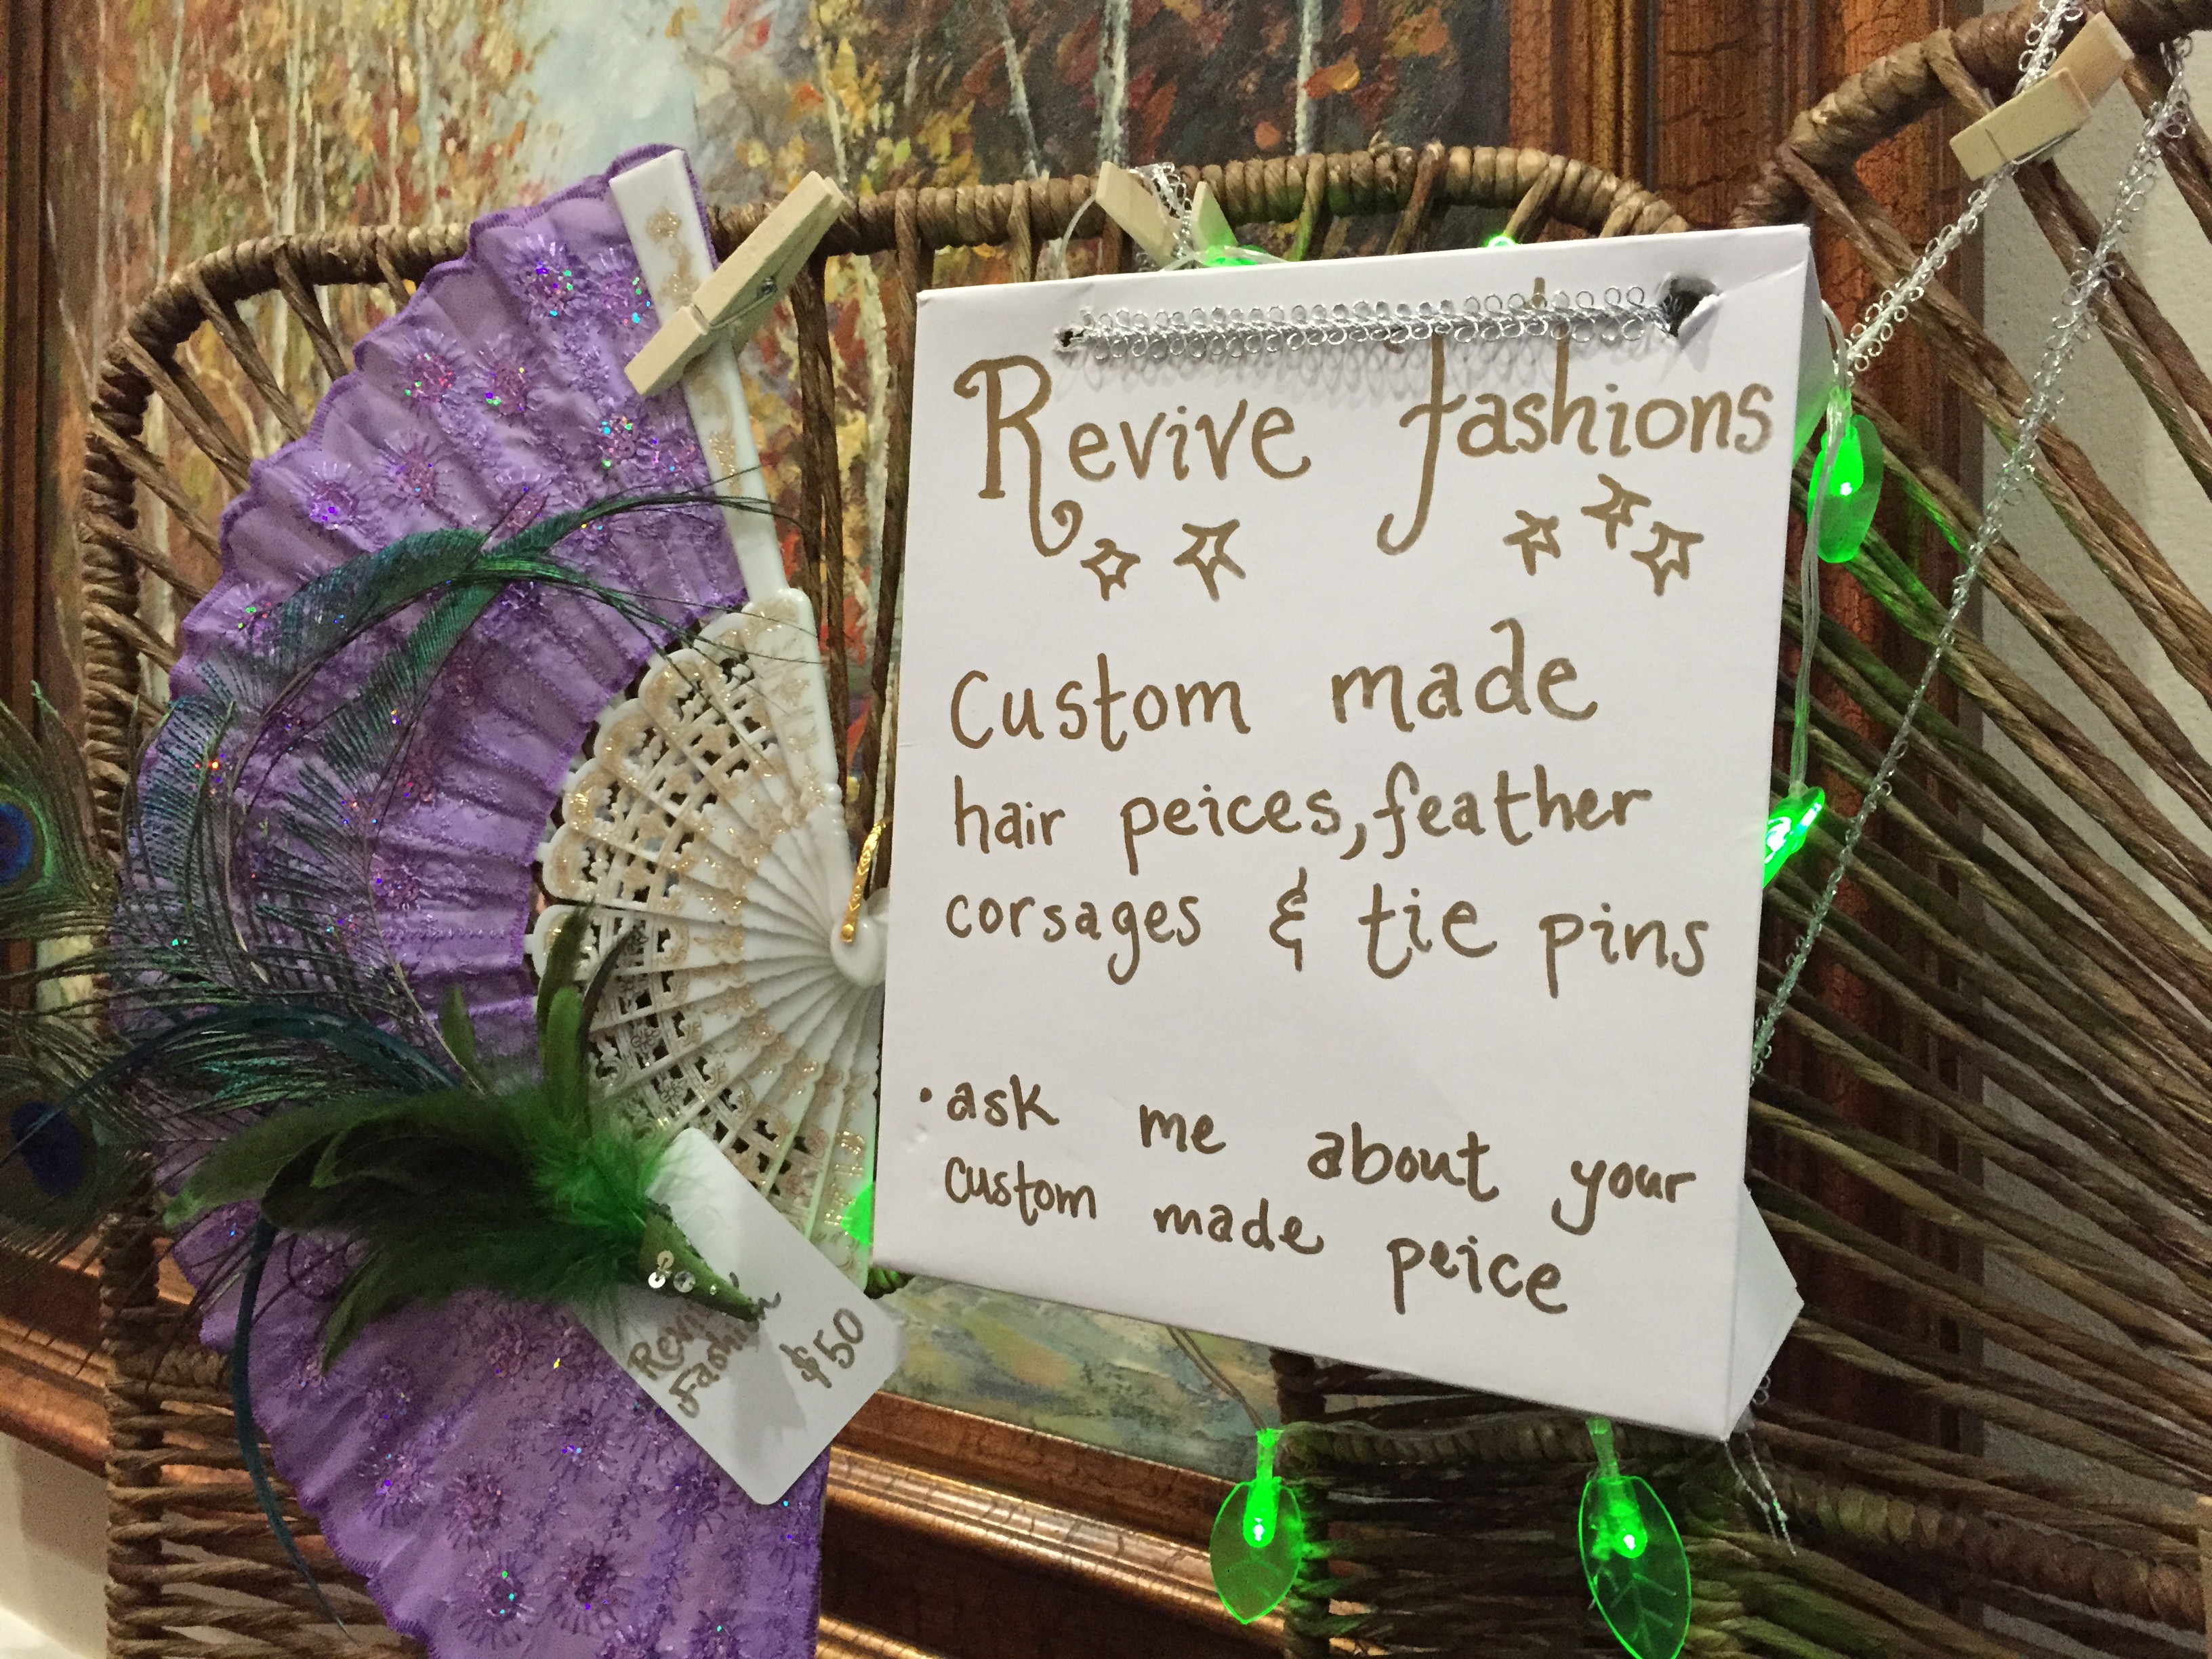 Revive fashions
Custom made
hair peices, feather
corsages & tie pins
• ask me about your
custom made peice
Fashion
$50